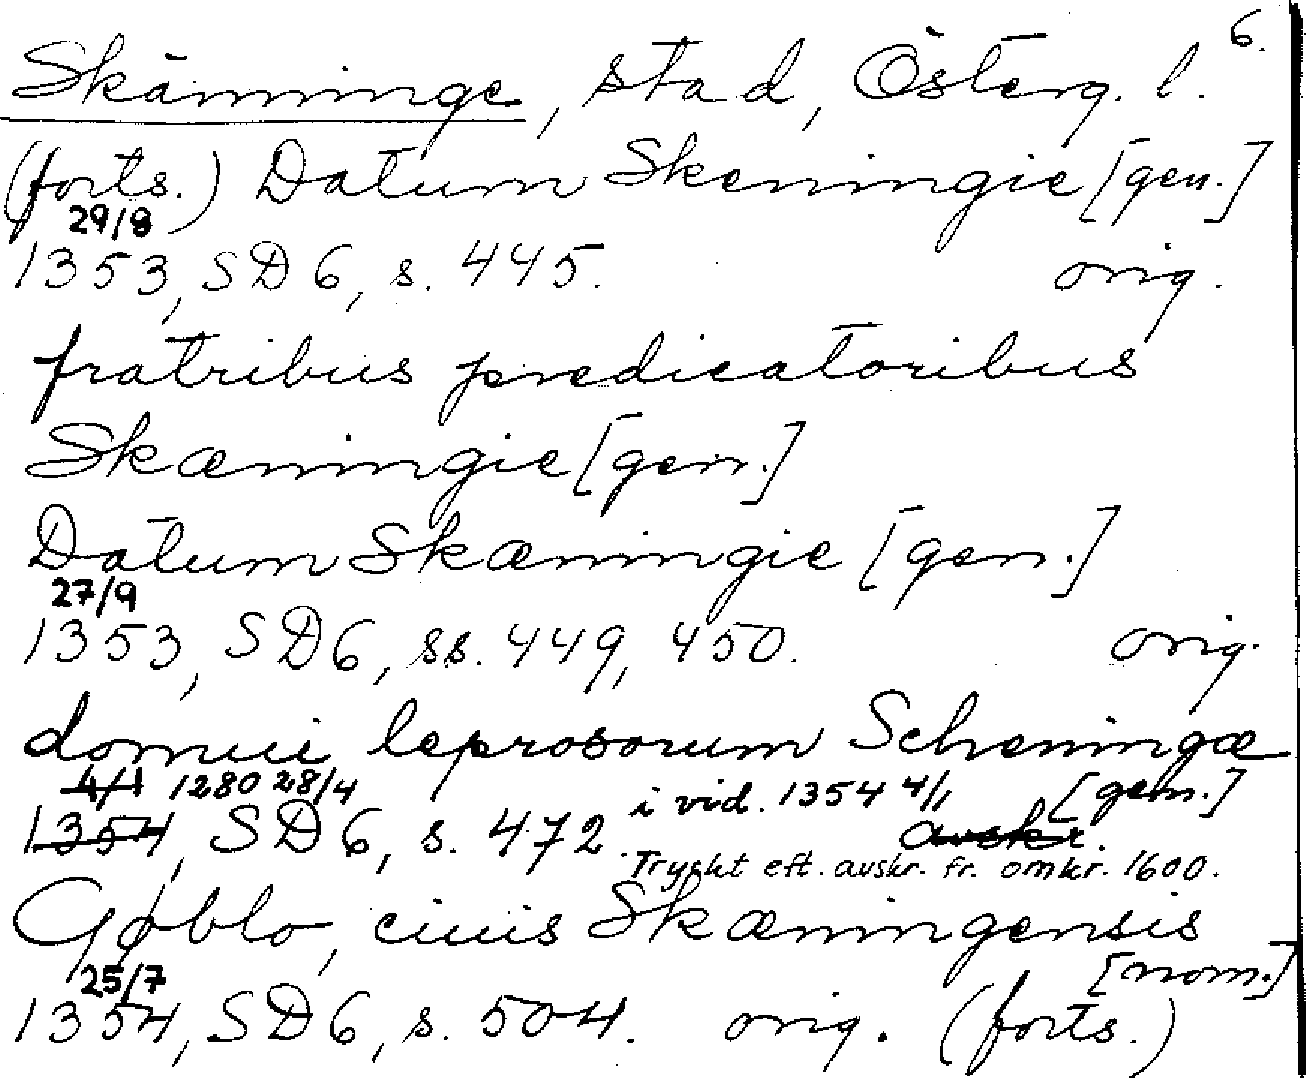 6.
Skänninge, stad, Österg. l.
(forts.) Datum Skeningie [gen.]
29/8
1353, SD 6, s. 445. orig.
fratribus predicatoribus
Skæningie [gen.]
Datum Skæningie [gen.]
27/9
1353, SD 6, ss. 449, 450. orig.
domui leprosorum Scheningæ
4/1 1280 28/4 i vid. 1354 4/1 [gen.]
1354, SD 6, s. 472. avskr.
Tryckt eft. avskr. fr. omkr. 1600.
Gøblo, ciuis Skæningensis
25/7 [nom.]
1354, SD 6, s. 504. orig. (forts.)